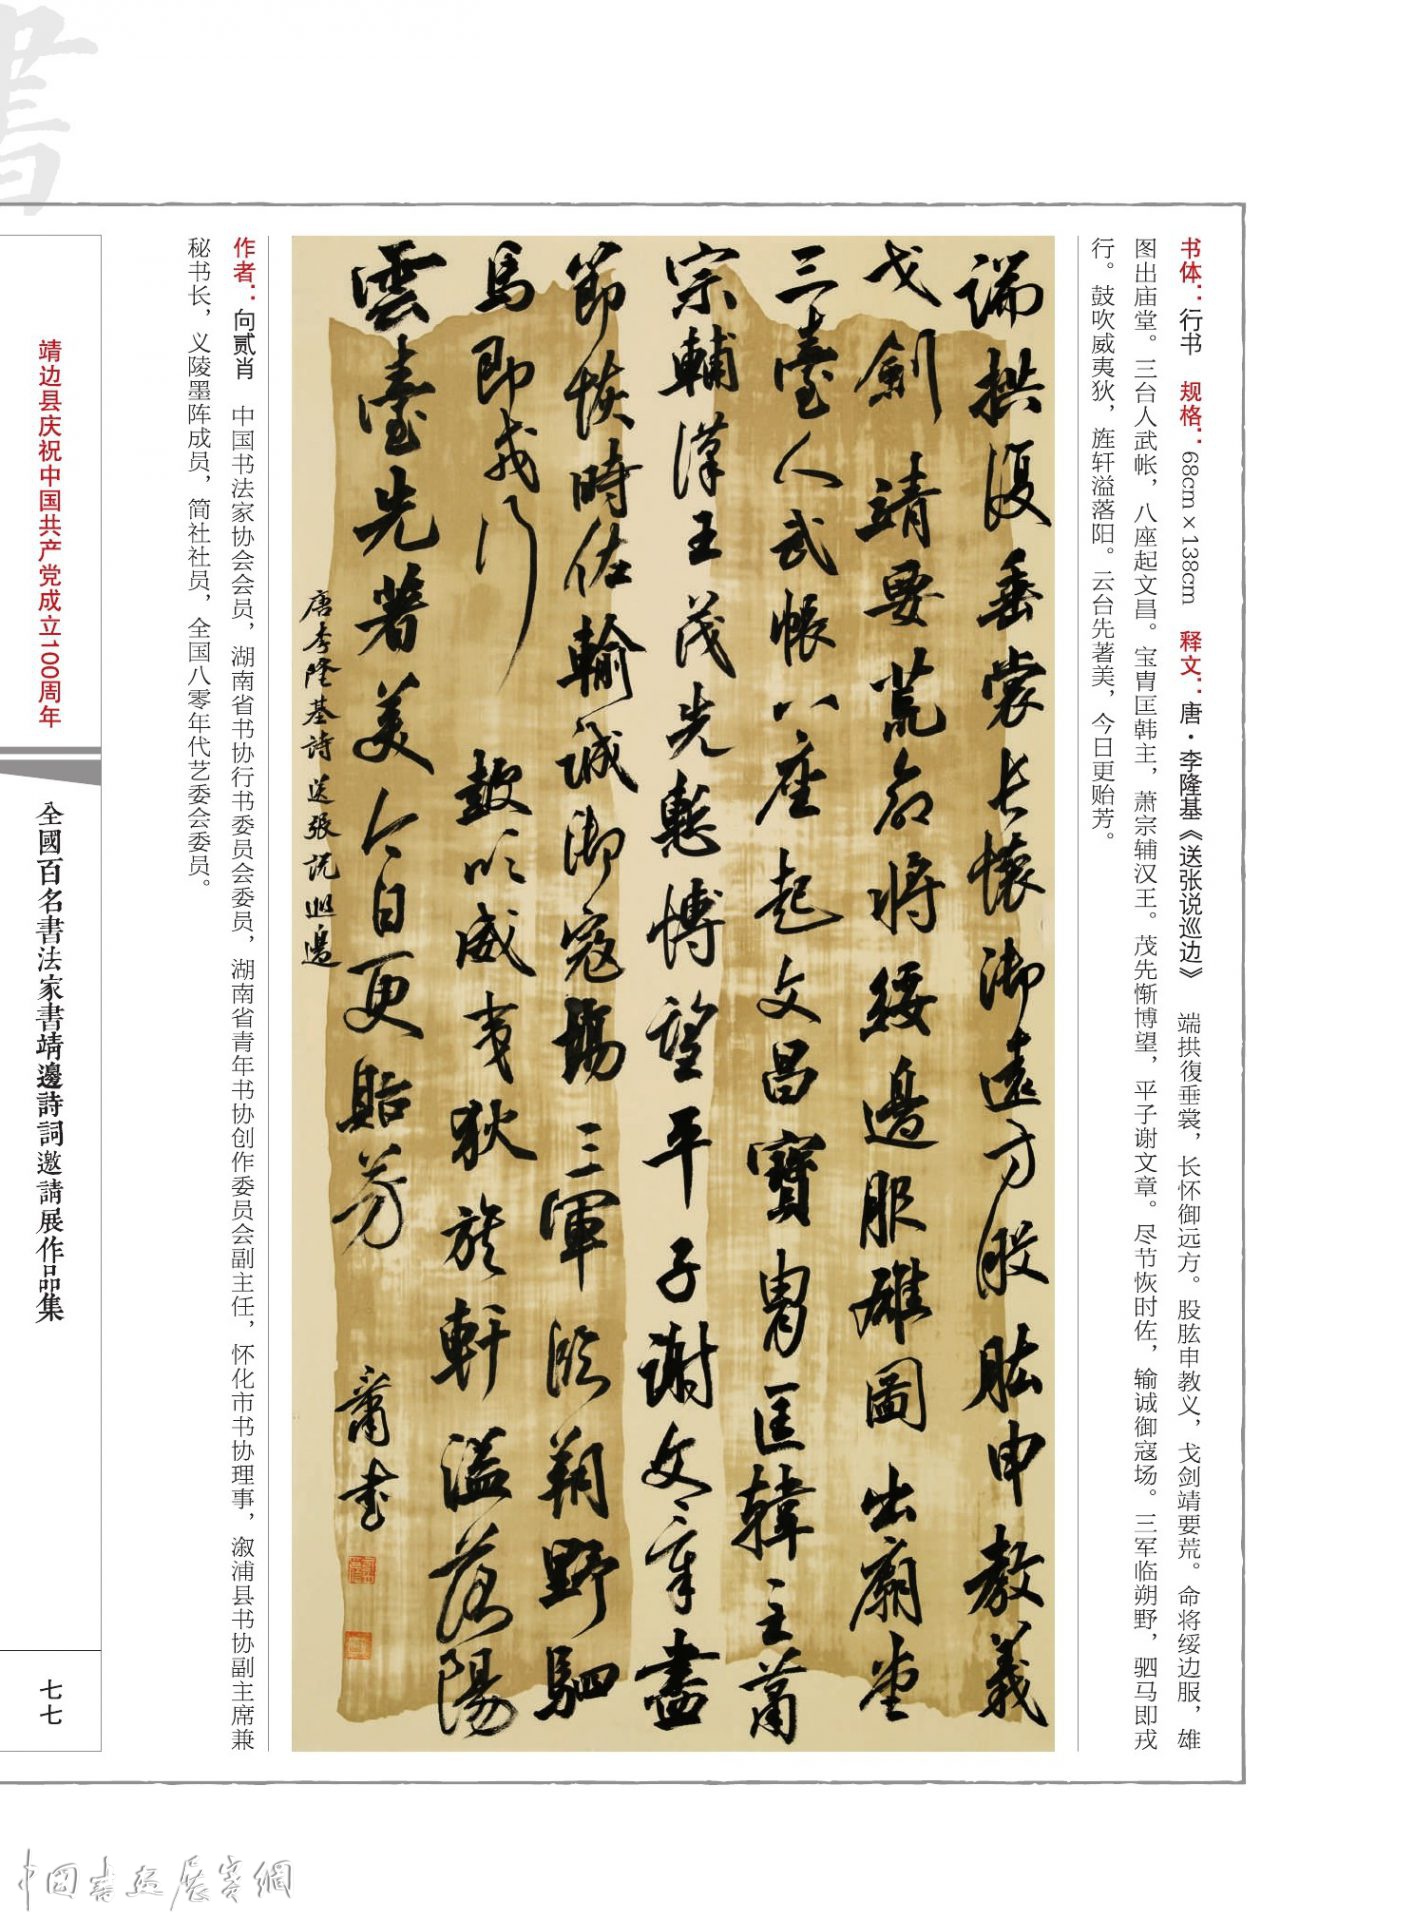 書
书体：行书　规格：68cm×138cm　释文：唐·李隆基《送张说巡边》　端拱復垂裳，长怀御远方。股肱申教义，戈剑靖要荒。命将绥边服，雄
图出庙堂。三台人武帐，八座起文昌。宝胄匡韩主，萧宗辅汉王。茂先惭博望，平子谢文章。尽节恢时佐，输诚御寇场。三军临朔野，驷马即戎
行。鼓吹威夷狄，旌轩溢落阳。云台先著美，今日更贻芳。
端拱復垂裳長懷御遠方股肱申教義
戈劍靖要荒命將綏邊服雄圖出廟堂
三臺人武帳八座起文昌寶胄匡韓主蕭
宗輔漢王茂先慙博望平子謝文章盡
節恢時佐輸誠御寇場三軍臨朔野駟
馬即戎行鼓吹威夷狄旌軒溢落陽
雲臺先著美今日更貽芳
唐李隆基詩送張説巡邊
肅書
作者：向贰肖　中国书法家协会会员，湖南省书协行书委员会委员，湖南省青年书协创作委员会副主任，怀化市书协理事，溆浦县书协副主席兼
秘书长，义陵墨阵成员，简社社员，全国八零年代艺委会委员。
靖边县庆祝中国共产党成立100周年
全國百名書法家書靖邊詩詞邀請展作品集
七七
中國書画展賽網